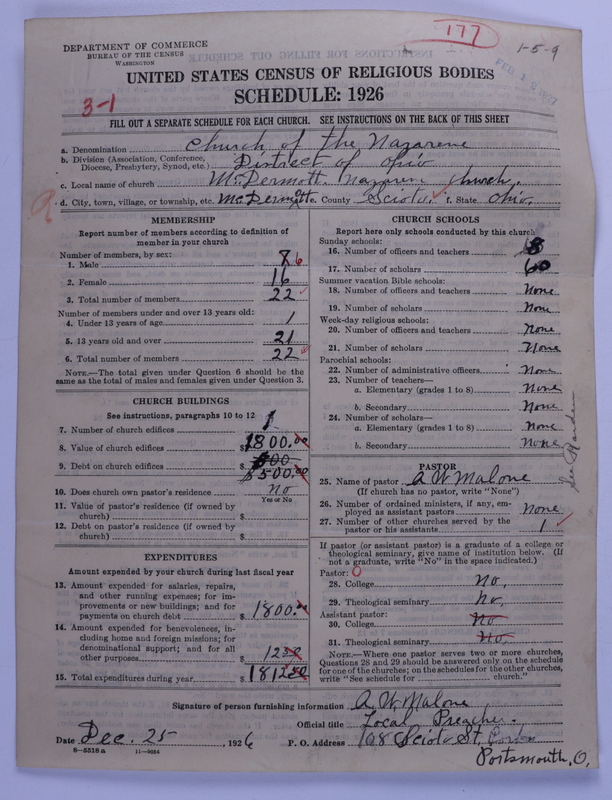 177
1-5-9
DEPARTMENT OF COMMERCE
BUREAU OF THE CENSUS
WASHINGTON
UNITED STATES CENSUS OF RELIGIOUS BODIES
SCHEDULE: 1926
3-1
FILL OUT A SEPARATE SCHEDULE FOR EACH CHURCH. SEE INSTRUCTIONS ON THE BACK OF THIS SHEET
a. Denomination Church of the Nazarene
b. Division (Association, Conference, Diocese, Presbytery, Synod, etc.) District of Ohio
c. Local name of church McDermott. Nazaren Church.
d. City, town, village, or township, etc. McDermott e. County Scioto. f. State Ohio.
MEMBERSHIP
Report number of members according to definition of
member in your church
Number of members, by sex:
1. Male 6
2. Female 16
3. Total number of members 22
Number of members under and over 13 years old:
4. Under 13 years of age 1
5. 13 years old and over 21
6. Total number of members 22
NOTE.—The total given under Question 6 should be
same as the total of males and females given under Question 3.
CHURCH BUILDINGS
See instructions, paragraphs 10 to 12
7. Number of church edifices 1
8. Value of church edifices $1800.00
9. Debt on church edifices $500.00
10. Does church own pastor's residence No
Yes or No
11. Value of pastor's residence (if owned by
church) $
12. Debt on pastor's residence (if owned by
church) $
EXPENDITURES
Amount expended by your church during last fiscal year
13. Amount expended for salaries, repairs,
and other running expenses; for im-
provements or new buildings; and for
payments on church debt $1800.00
14. Amount expended for benevolences, in-
cluding home and foreign missions; for
denominational support; and for all
other purposes 12 50
15. Total expenditures during year $1812 50
CHURCH SCHOOLS
Report here only schools conducted by this church
Sunday schools:
16. Number of officers and teachers 8
17. Number of scholars 60
Summer vacation Bible schools:
18. Number of officers and teachers None
19. Number of scholars None
Week-day religious schools:
20. Number of officers and teachers None
21. Number of scholars None
Parochial schools:
22. Number of administrative officers None
23. Number of teachers—
a. Elementary (grades 1 to 8) None
b. Secondary None
24. Number of scholars—
a. Elementary (grades 1 to 8) None
b. Secondary None
PASTOR
25. Name of pastor A W Malone
(If church has no pastor, write "None")
26. Number of ordained ministers, if any, em-
ployed as assistant pastors None
27. Number of other churches served by the
pastor or his assistants 1
If pastor (or assistant pastor) is a graduate of a college or
theological seminary, give name of institution below. (If
not a graduate, write "No" in the space indicated.)
Pastor: 0
28. College No.
29. Theological seminary No.
Assistant pastor:
30. College No
31. Theological seminary No
NOTE.—Where one pastor serves two or more churches,
Questions 28 and 29 should be answered only on the schedule
for one of the churches; on the schedules for the other churches,
write "See schedule for church."
Signature of person furnishing information A. W. Malone
Official title Local Preacher.
Date Dec. 25, 1926 P. O. Address 108 Scioto St.
Portsmouth, O.
8-5518 a 11-9084